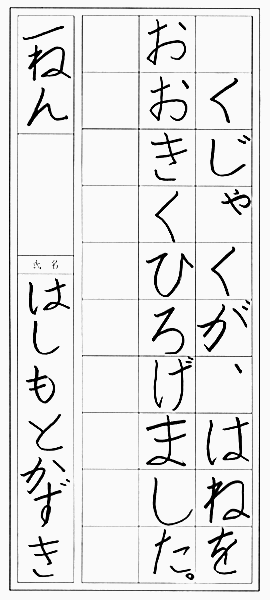 くじゃくが、はねを
おおきくひろげました。
一ねん
氏名
はしもとかずき